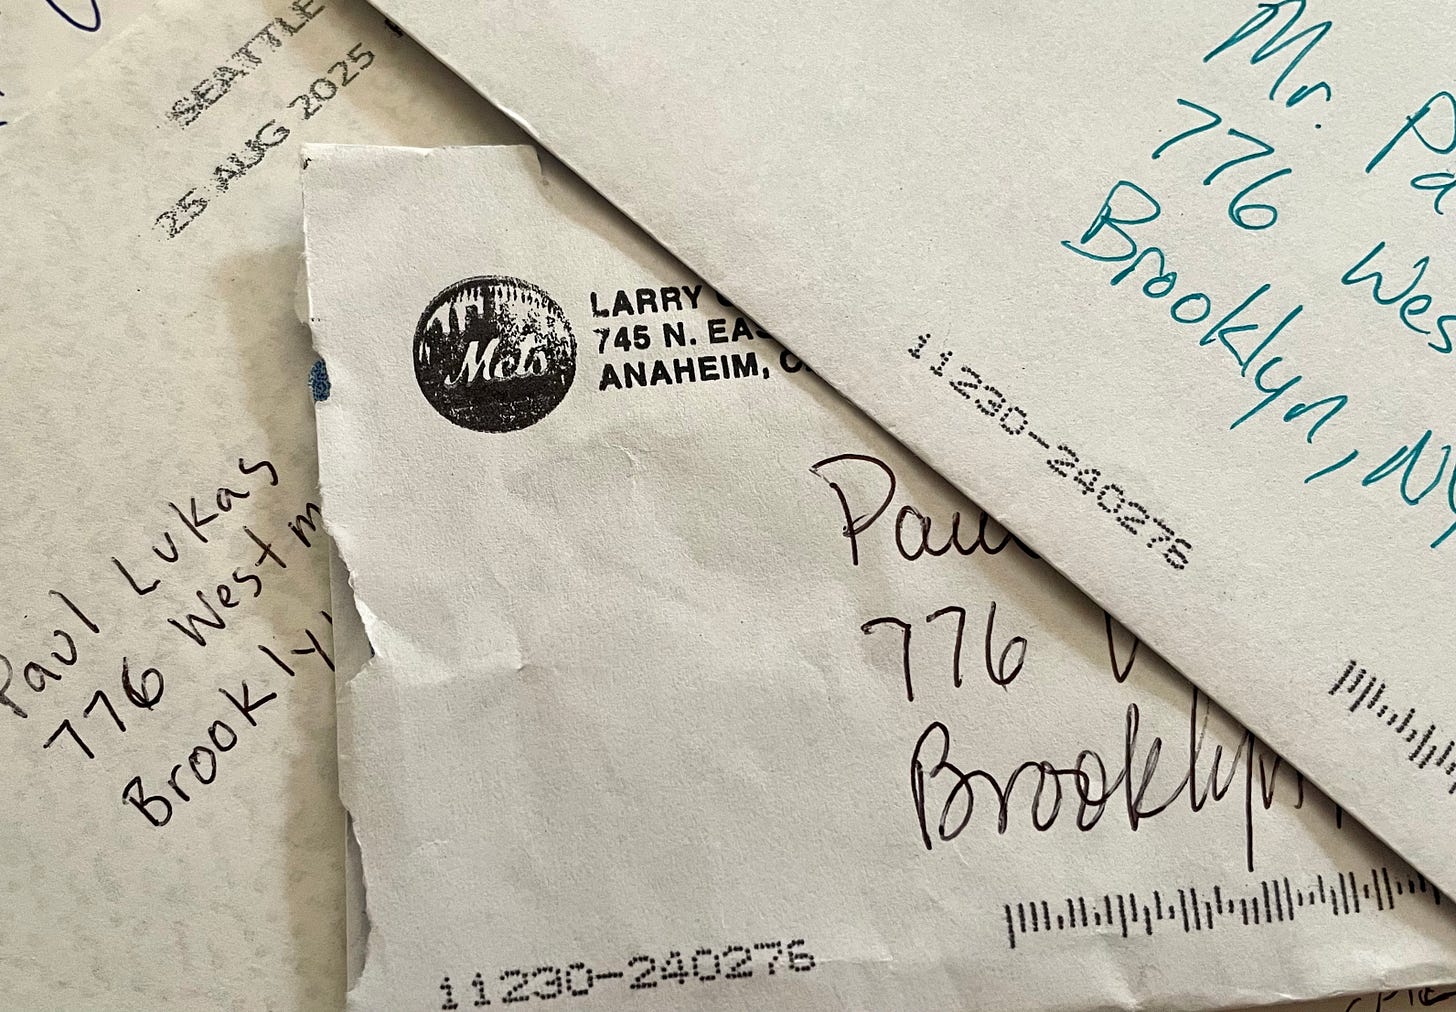 SEATTLE
25 AUG 2025
Paul Lukas
776 Westm
Brooklyn
Mets
LARRY
745 N. EAS
ANAHEIM, C
Paul
776
Brooklyn
11230-240276
Mr. Pa
776 Wes
Brooklyn, NY
11230-240276